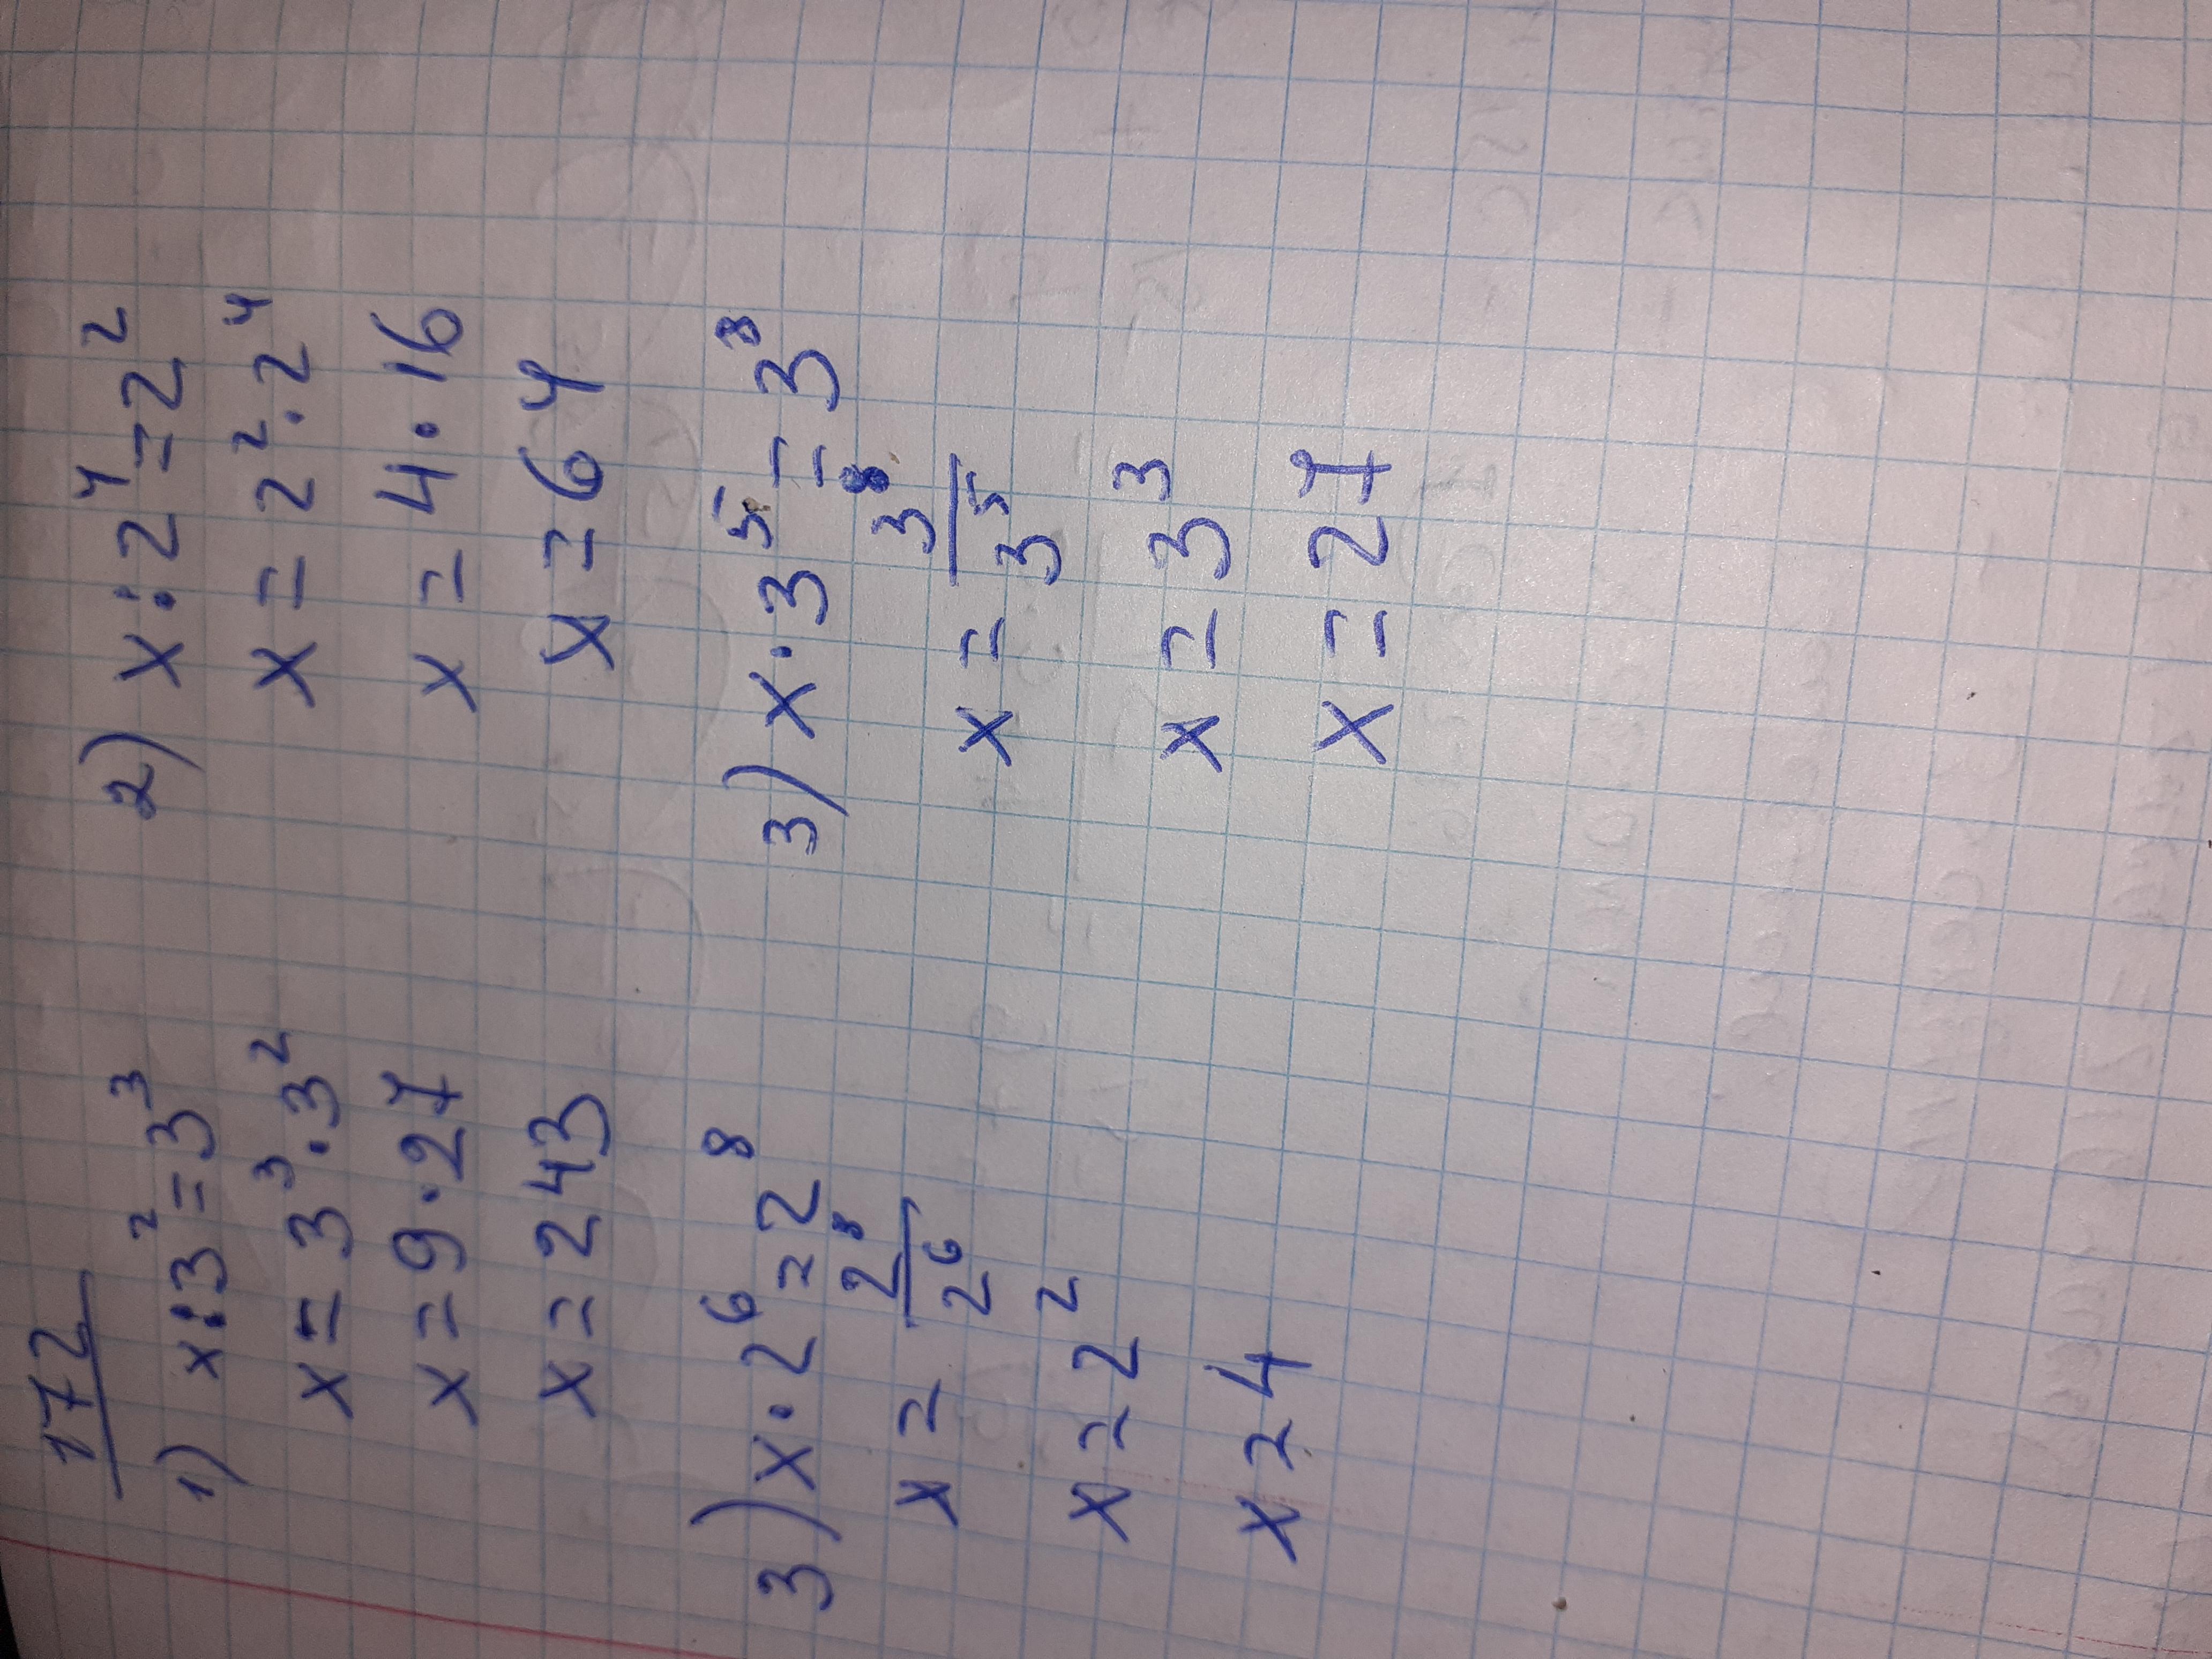 172
1) x:3²=3³
x=3³·3²
x=9·27
x=243
2) x:2⁴=2²
x=2²·2⁴
x=4·16
x=64
3) x·2⁶=2⁸
x=2⁸/2⁶
x=2²
x=4
3) x·3⁵=3⁸
x=3⁸/3⁵
x=3³
x=27